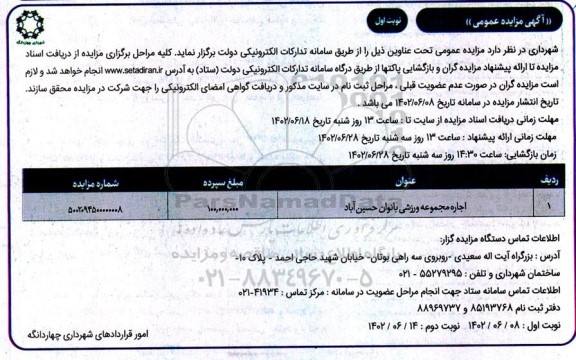 (( آگهی مزایده عمومی ))
نوبت اول
شهرداری در نظر دارد مزایده عمومی تحت عناوین ذیل را از طریق سامانه تدارکات الکترونیکی دولت برگزار نماید. کلیه مراحل برگزاری مزایده از دریافت اسناد
مزایده تا ارائه پیشنهاد مزایده گران و بازگشایی پاکتها از طریق درگاه سامانه تدارکات الکترونیکی دولت (ستاد) به آدرس www.setadiran.ir انجام خواهد شد و لازم
است مزایده گران در صورت عدم عضویت قبلی ، مراحل ثبت نام در سایت مذکور و دریافت گواهی امضای الکترونیکی را جهت شرکت در مزایده محقق سازند.
تاریخ انتشار مزایده در سامانه تاریخ ۱۴۰۲/۰۶/۰۸ می باشد.
مهلت زمانی دریافت اسناد مزایده از سایت تا : ساعت ۱۳ روز شنبه تاریخ ۱۴۰۲/۰۶/۱۸
مهلت زمانی ارائه پیشنهاد : ساعت ۱۳ روز سه شنبه تاریخ ۱۴۰۲/۰۶/۲۸
زمان بازگشایی: ساعت ۱۴:۳۰ روز سه شنبه تاریخ ۱۴۰۲/۰۶/۲۸
ردیف عنوان مبلغ سپرده شماره مزایده
۱ اجاره مجموعه ورزشی بانوان حسین آباد ۱۰۰,۰۰۰,۰۰۰ ۵۰۰۲۰۹۴۵۰۰۰۰۰۰۰۸
اطلاعات تماس دستگاه مزایده گزار:
آدرس : بزرگراه آیت اله سعیدی -روبروی سه راهی بوتان- خیابان شهید حاجی احمد - پلاک ۱۰-
ساختمان شهرداری و تلفن : ۵۵۲۷۹۲۹۵ - ۰۲۱
اطلاعات تماس سامانه ستاد جهت انجام مراحل عضویت در سامانه : مرکز تماس : ۴۱۹۳۴-۰۲۱
دفتر ثبت نام ۸۵۱۹۳۷۶۸ و ۸۸۹۶۹۷۳۷
نوبت اول : ۰۸ / ۰۶ / ۱۴۰۲ نوبت دوم : ۱۴ / ۰۶ / ۱۴۰۲
امور قراردادهای شهرداری چهاردانگه
ParsNamadData
۰۲۱-۸۸۳۴۹۶۷۰-۵